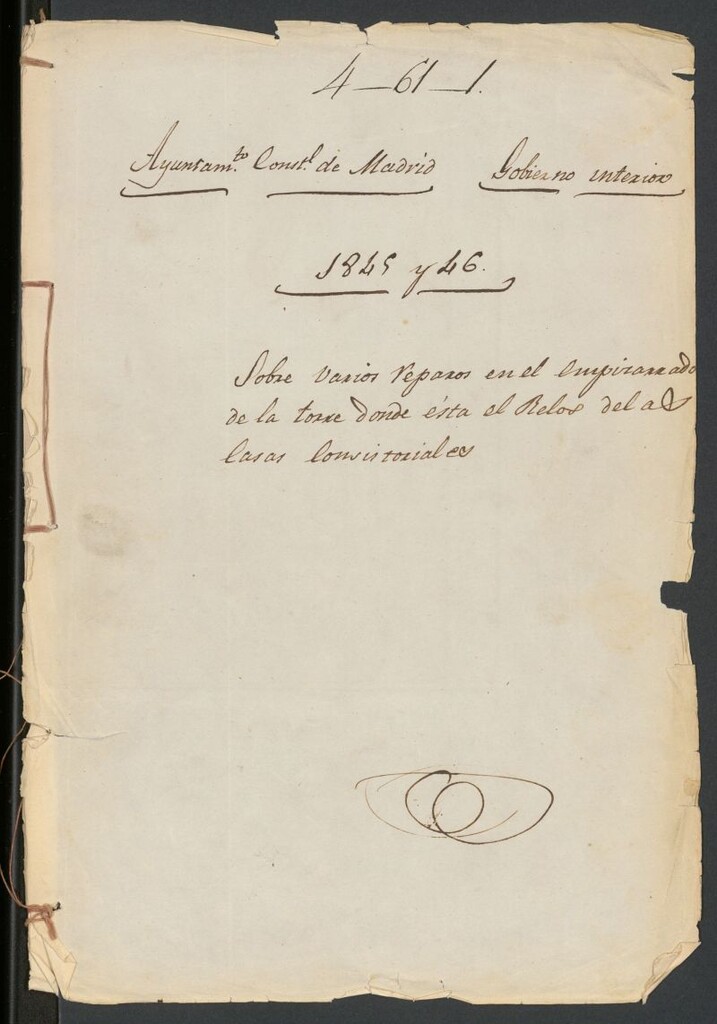 4-61-1.
Ayuntam.to Const.l de Madrid Gobierno interior
1845 y 46.
Sobre varios reparos en el empizarrado
de la torre donde ésta el Relox de las
Casas Consistoriales